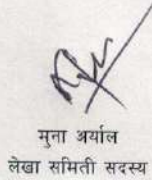 मुना अर्याल
लेखा समिती सदस्य